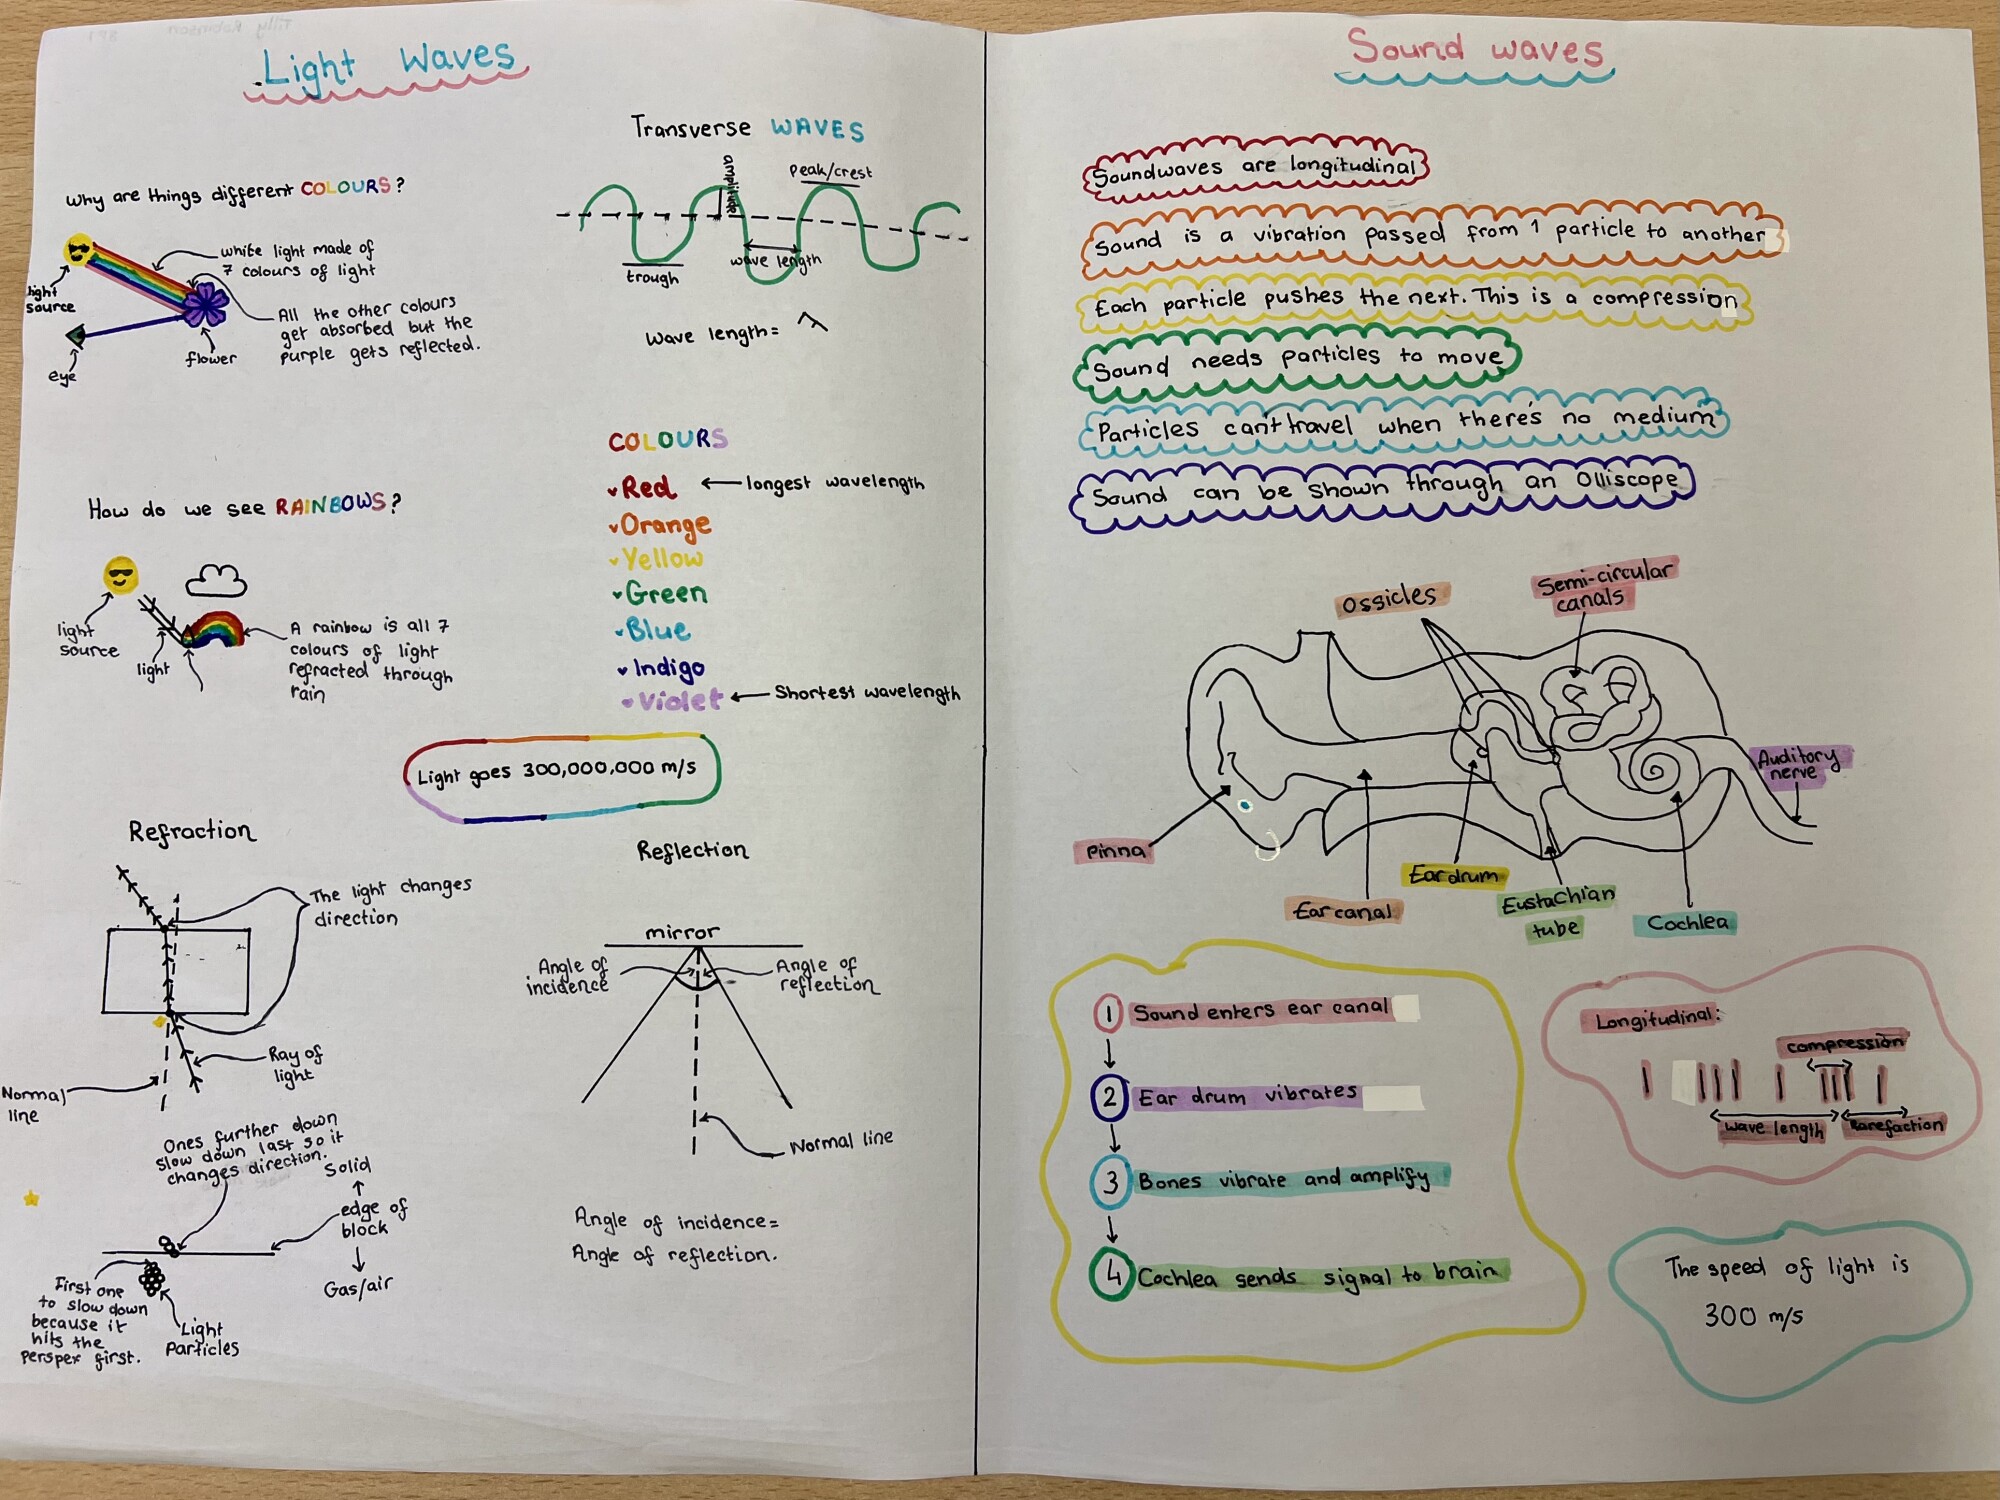 Light Waves
Why are things different COLOURS?
light
source
white light made of
7 colours of light
All the other colours
get absorbed but the
purple gets reflected.
flower
eye
Transverse WAVES
amplitude
peak/crest
trough
wave length
Wave length= λ
How do we see RAINBOWS?
light
source
light
A rainbow is all 7
colours of light
refracted through
rain
COLOURS
Red
longest wavelength
Orange
Yellow
Green
Blue
Indigo
Violet
Shortest wavelength
Light goes 300,000,000 m/s
Refraction
The light changes
direction
Ray of
light
Normal
line
Ones further down
slow down last so it
changes direction.
Solid
edge of
block
Gas/air
First one
to slow down
because it
hits the
perspex first.
Light
Particles
Reflection
mirror
Angle of
incidence
Angle of
reflection
Normal line
Angle of incidence=
Angle of reflection.
Sound waves
Soundwaves are longitudinal
Sound is a vibration passed from 1 particle to another
Each particle pushes the next. This is a compression
Sound needs particles to move
Particles can't travel when there's no medium
Sound can be shown through an Olliscope
Ossicles
Semi-circular
canals
Auditory
nerve
Pinna
Ear canal
Ear drum
Eustachian
tube
Cochlea
1 Sound enters ear canal
2 Ear drum vibrates
3 Bones vibrate and amplify
4 Cochlea sends signal to brain
Longitudinal:
compression
wave length
Rarefaction
The speed of light is
300 m/s